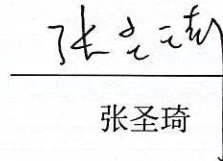 张圣琦
张圣琦